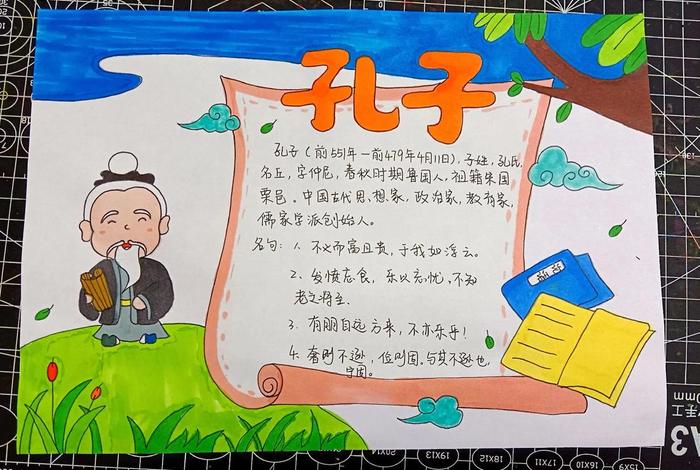 孔子
孔子(前551年-前479年4月11日),子姓,孔氏,
名丘,字仲尼,春秋时期鲁国人,祖籍宋国
栗邑。中国古代思想家,政治家,教育家,
儒家学派创始人。
名句: 1. 不义而富且贵,于我如浮云。
2、发愤忘食,乐以忘忧,不知
老之将至.
3. 有朋自远方来,不亦乐乎!
4. 奢则不逊,俭则固。与其不逊也,
宁固。
手工
A3
20X14
19X13
18X12
17X11
16X10
15X9